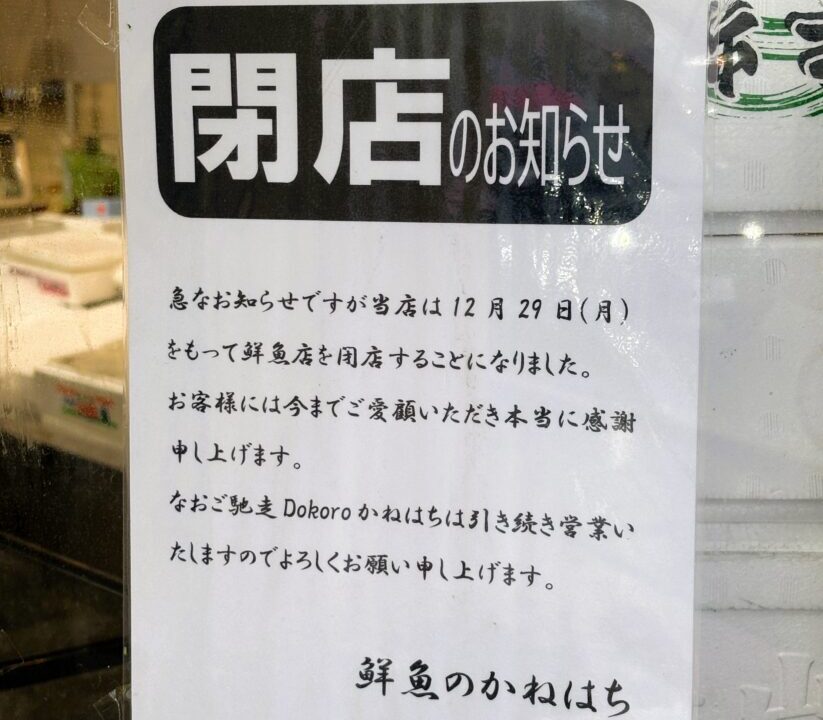 閉店のお知らせ
急なお知らせですが当店は12月29日(月)
をもって鮮魚店を閉店することになりました。
お客様には今までご愛顧いただき本当に感謝
申し上げます。
なおご馳走Dokoroかねはちは引き続き営業い
たしますのでよろしくお願い申し上げます。
鮮魚のかねはち